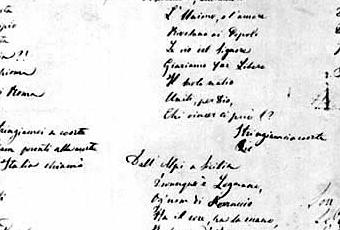 ia ??
chioma
i Roma
tringiamci a coorte
iam pronti alla morte
Italia chiamò
L'Unione, e l'amore
Rivelano ai Popoli
Le vie del Signore
Giuriamo far Libero
Il suolo natio
Uniti, per Dio,
Chi vincer ci può !?
Stringiamci a coorte
Dall'Alpi a Sicilia
Dovunque è Legnano,
Ogn'uom di Ferruccio
Ha il core, ha la mano,
Son